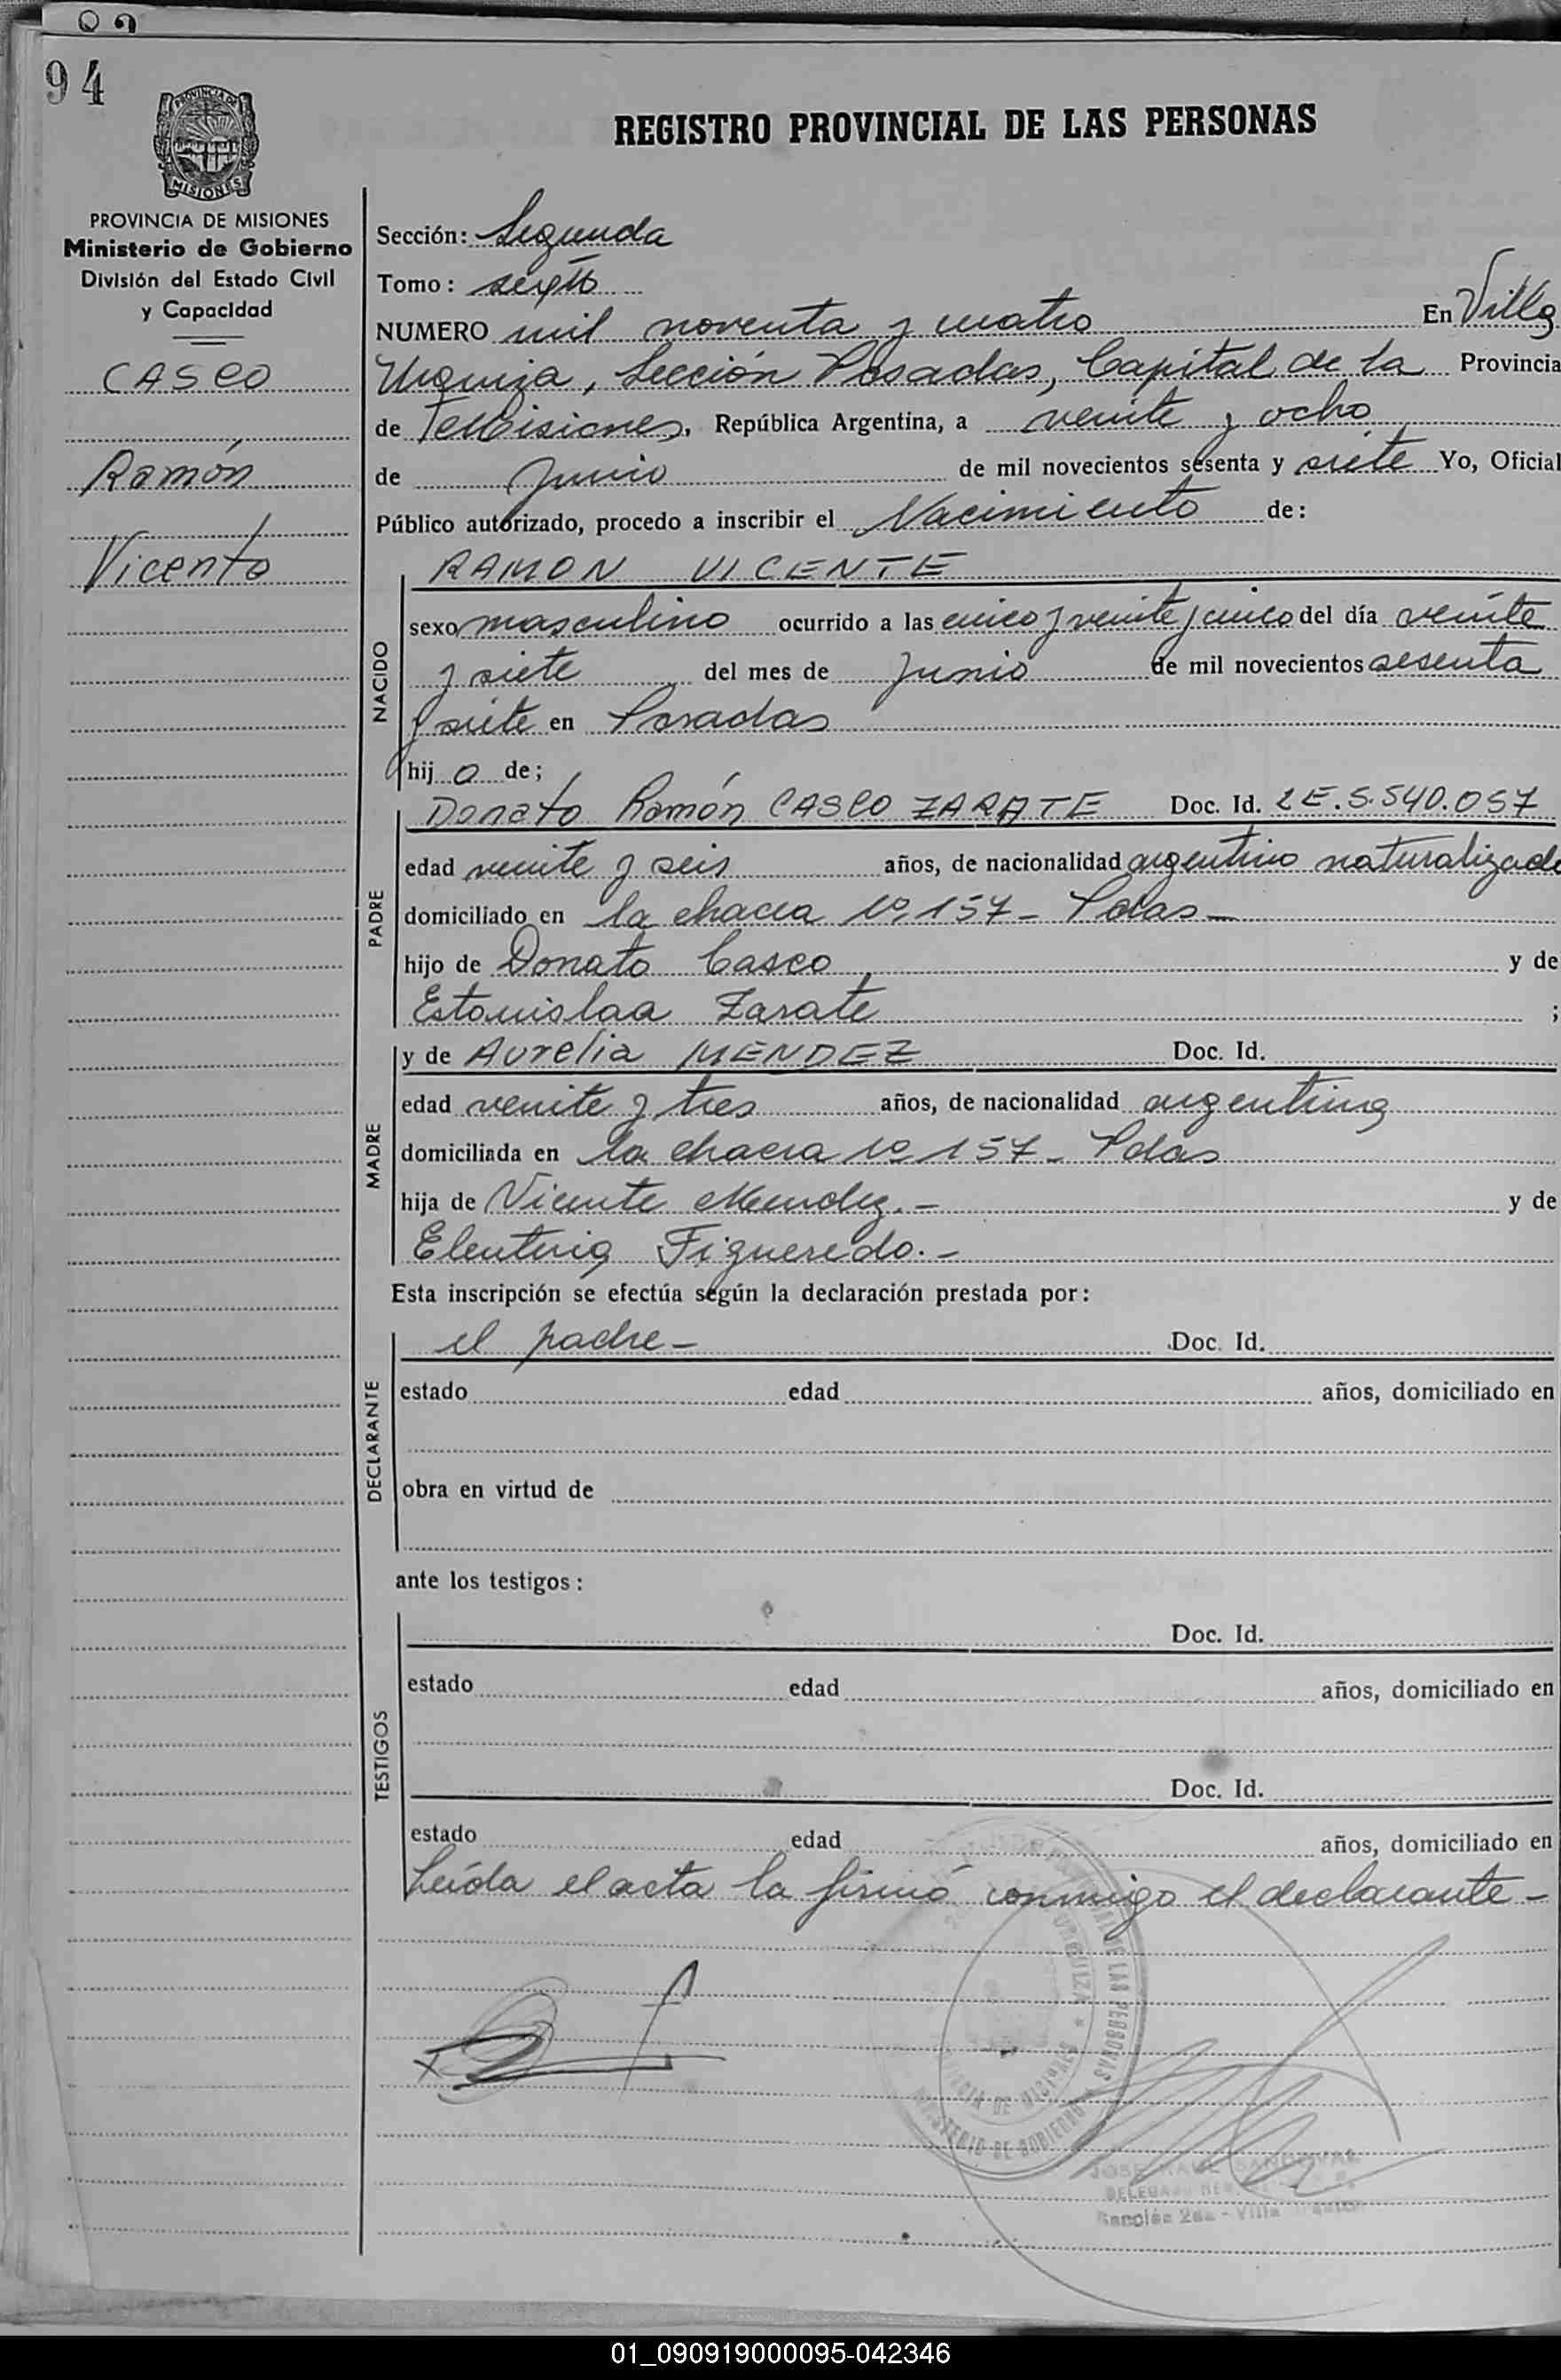 94
PROVINCIA DE
MISIONES
REGISTRO PROVINCIAL DE LAS PERSONAS
PROVINCIA DE MISIONES
Ministerio de Gobierno
División del Estado Civil
y Capacidad
CASCO
Ramón
Vicente
Sección: Segunda
Tomo: sexto
NUMERO mil noventa y cuatro En Villa
Urquiza, Sección Posadas, Capital de la Provincia
de Misiones, República Argentina, a veinte y ocho
de Junio de mil novecientos sesenta y siete Yo, Oficial
Público autorizado, procedo a inscribir el Nacimiento de:
NACIDO
RAMON VICENTE
sexo masculino ocurrido a las cinco y veinte y cinco del día veinte
y siete del mes de Junio de mil novecientos sesenta
y siete en Posadas
hij o de;
PADRE
Donato Ramón CASCO ZARATE Doc. Id. LE. 5.540.057
edad veinte y seis años, de nacionalidad argentino naturalizado
domiciliado en la chacra Nº 157 - Pdas -
hijo de Donato Casco y de
Estanislaa Zarate ;
MADRE
y de Aurelia MENDEZ Doc. Id.
edad veinte y tres años, de nacionalidad argentina
domiciliada en la chacra Nº 157 - Pdas
hija de Vicente Mendez. - y de
Eleuteria Figueredo. -
Esta inscripción se efectúa según la declaración prestada por:
DECLARANTE
el padre - Doc. Id.
estado edad años, domiciliado en
obra en virtud de
ante los testigos:
TESTIGOS
Doc. Id.
estado edad años, domiciliado en
Doc. Id.
estado edad años, domiciliado en
Leída el acta la firmó conmigo el declarante -
DE LAS PERSONAS
URQUIZA
DE MISIONES
MINISTERIO DE GOBIERNO
JOSE RAUL SANDOVAL
Sección 2da - Villa
01_090919000095-042346